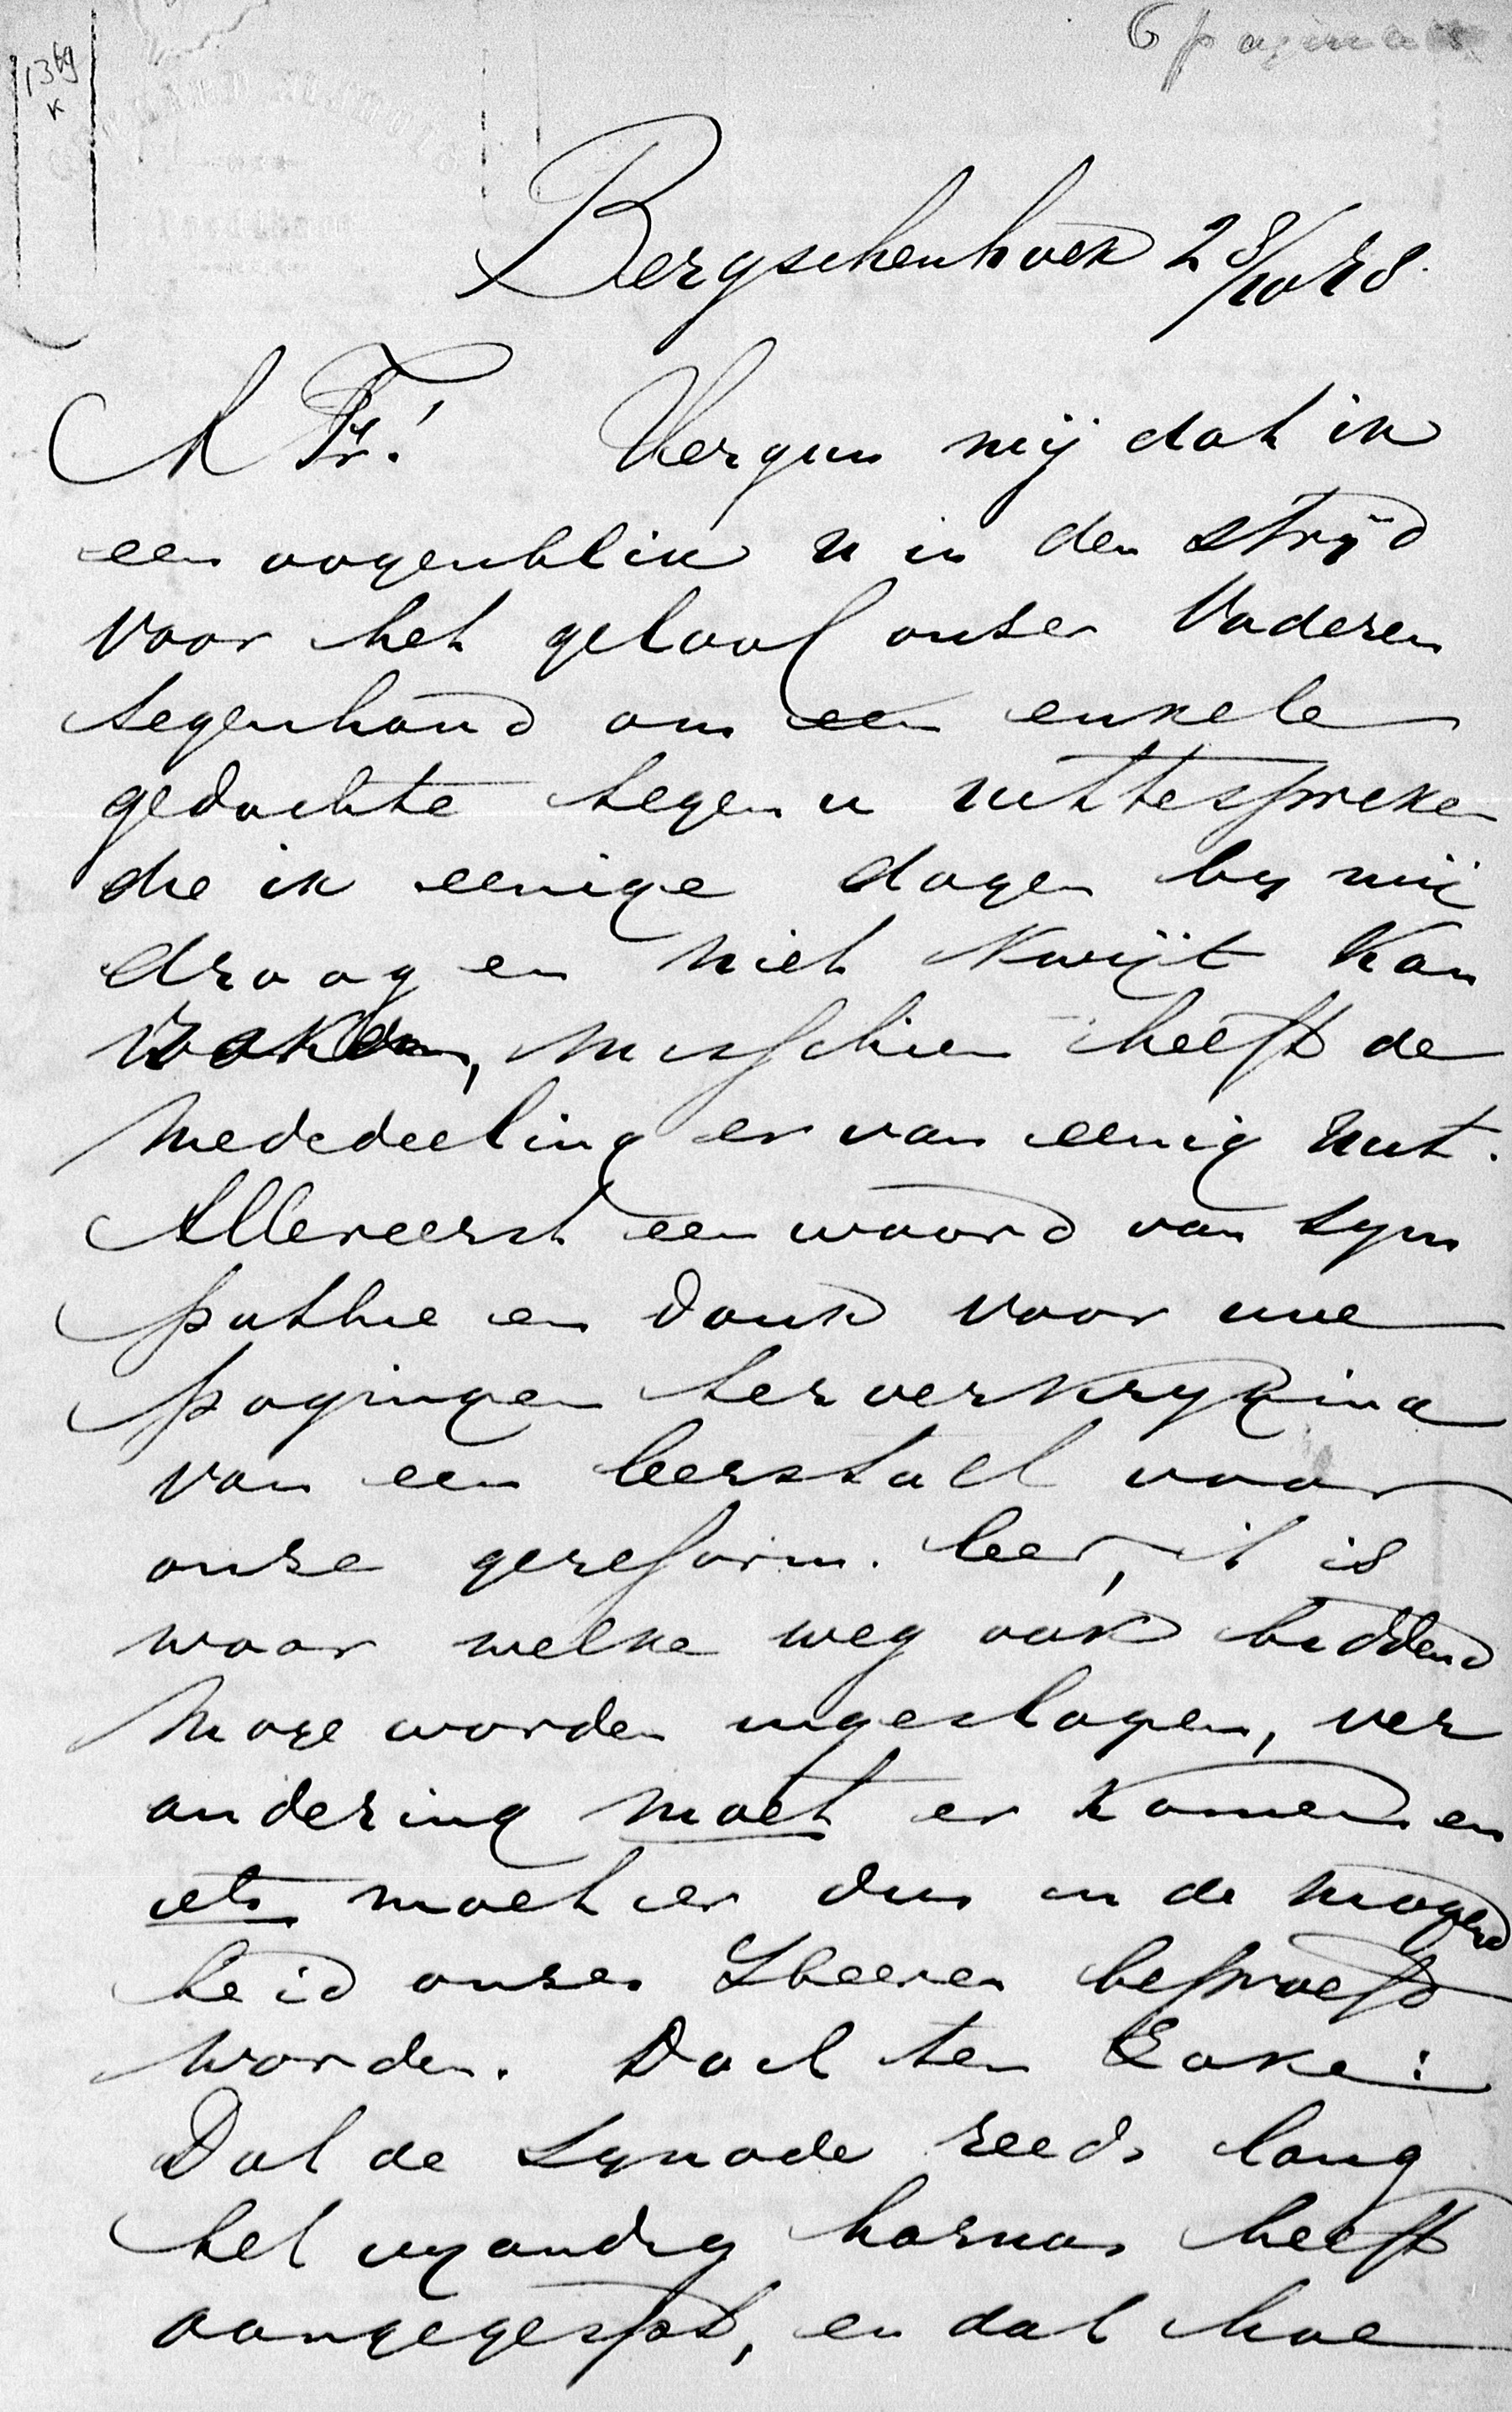 6 pagina's
13 69
K
Bergschenhoek 28/10 78.
A Fr! Vergun mij dat ik
een oogenblik u in den strijd
voor het geloof onser Vaderen
tegenhoud om een enkele
gedachte tegen u uittespreken
die ik eenige dagen by mij
draag en niet kwijt kan
raken, misschien heeft de
mededeeling er van eenig nut.
Allereerst een woord van sym
pathie en dank voor uwe
pogingen ter verkryging
van een leerstoel voor
onze gereform. leer, 't is
waar welke weg ook biddend
moge worden ingeslagen, ver
andering moet er komen en
iets moet er dus in de mogend
heid onzes Heeren beproefd
worden. Doch ter zake:
Dat de Synode reeds lang
het vyandig harnas heeft
aangegespt, en dat hoe